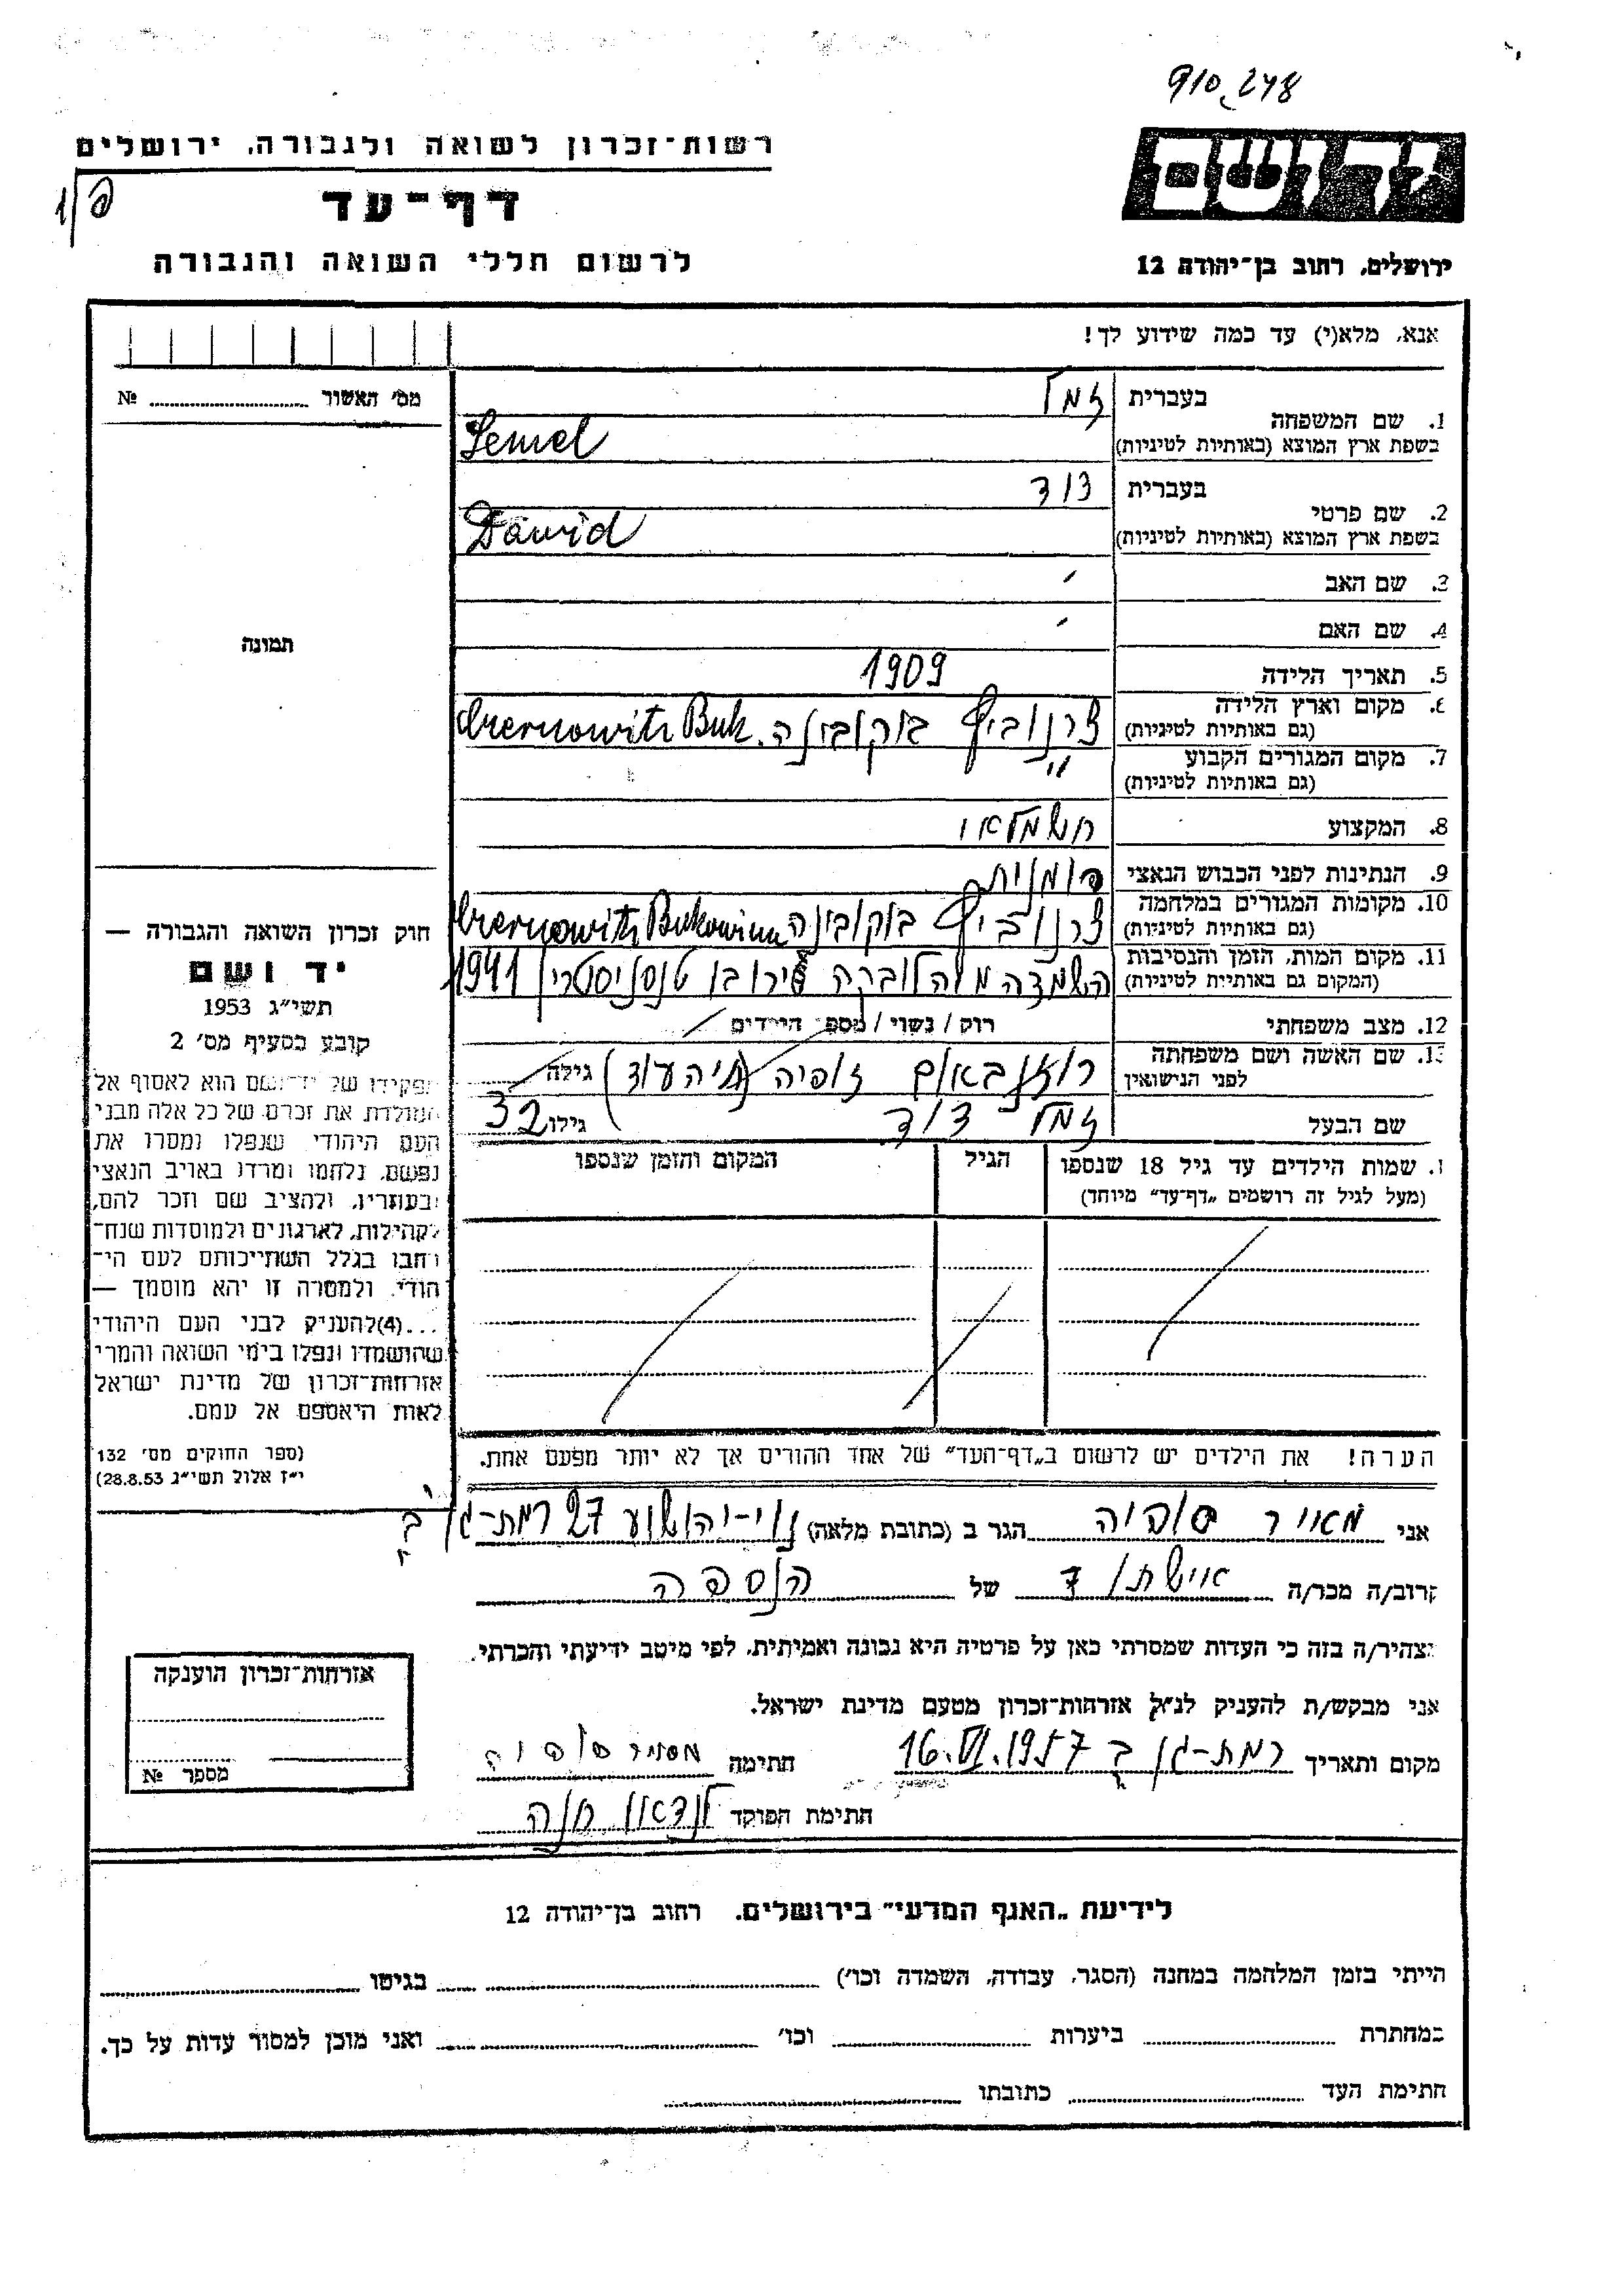 910248
רשות־זכרון לשואה ולגבורה, ירושלים
דף־עד
לרשום חללי השואה והגבורה
יד ושם
ירושלים, רחוב בן־יהודה 12
אנא, מלא(י) עד כמה שידוע לך!
מס׳ האשור № 
1. שם המשפחה בעברית זמל
בשפת ארץ המוצא (באותיות לטיניות) Semel
2. שם פרטי בעברית דוד
בשפת ארץ המוצא (באותיות לטיניות) Dawid
3. שם האב
4. שם האם
תמונה
5. תאריך הלידה 1909
6. מקום וארץ הלידה (גם באותיות לטיניות) צרנוביץ בוקובינה. Czernowitz Buk.
7. מקום המגורים הקבוע (גם באותיות לטיניות) "
8. המקצוע חשמלאי
9. הנתינות לפני הכבוש הנאצי רומנית
10. מקומות המגורים במלחמה (גם באותיות לטיניות) צרנוביץ בוקובינה Czernowitz Bukowina
11. מקום המות, הזמן והנסיבות (המקום גם באותיות לטיניות) 1941
12. מצב משפחתי רוק / נשוי / מספר הילדים
13. שם האשה ושם משפחתה לפני הנישואין רוזנבאום זופיה גילה
שם הבעל זמל דוד גילו 32
שמות הילדים עד גיל 18 שנספו הגיל המקום והזמן שנספו
(מעל לגיל זה רושמים „דף־עד״ מיוחד)
הערה! את הילדים יש לרשום ב„דף־העד״ של אחד ההורים אך לא יותר מפעם אחת.
חוק זכרון השואה והגבורה —
יד ושם
תשי״ג 1953
קובע בסעיף מס׳ 2
תפקידו של יד־ושם הוא לאסוף אל
המולדת את זכרם של כל אלה מבני
העם היהודי שנפלו ומסרו את
נפשם, נלחמו ומרדו באויב הנאצי
ובעוזריו, ולהציב שם וזכר להם,
לקהילות, לארגונים ולמוסדות שנח־
רבו בגלל השתייכותם לעם הי־
הודי, ולמטרה זו יהא מוסמך —
...(4)להעניק לבני העם היהודי
שהושמדו ונפלו בימי השואה והמרי
אזרחות־זכרון של מדינת ישראל
לאות היאספם אל עמם.
(ספר החוקים מס׳ 132
י״ז אלול תשי״ג 28.8.53)
אני מאיר סופיה הגר ב (כתובת מלאה) נוי-יהושע 27 רמת-גן ב׳
קרוב/ה מכר/ה אישתו של הנספה
מצהיר/ה בזה כי העדות שמסרתי כאן על פרטיה היא נכונה ואמיתית, לפי מיטב ידיעתי והכרתי.
אני מבקש/ת להעניק לנ״ל אזרחות־זכרון מטעם מדינת ישראל.
מקום ותאריך רמת-גן ב 16.VI.1957 חתימה מאיר סופיה
חתימת הפוקד לנדאו חנה
אזרחות־זכרון הוענקה
מספר №
לידיעת „האגף המדעי״ בירושלים, רחוב בן־יהודה 12
הייתי בזמן המלחמה במחנה (הסגר, עבודה, השמדה וכו׳) בגיטו
במחתרת ביערות וכו׳ ואני מוכן למסור עדות על כך.
חתימת העד כתובתו